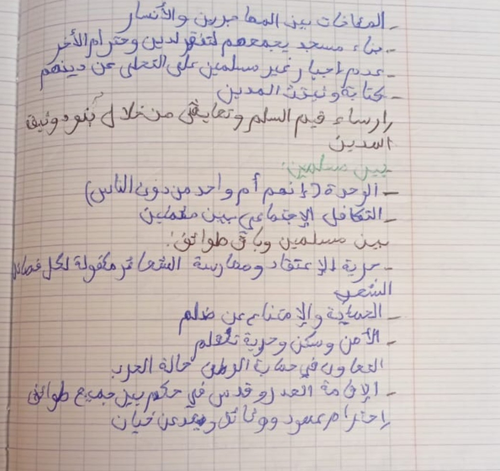 - المؤاخات بين المهاجرين والأنسار
- بناء مسجد يجمعهم لتفقر لدين وحترام الأخر
- عدم إجبار غير مسلمين على التخلي عن دينهم
- كتابة وثيقت المدين
إرساء قيم السلم وتعايش من خلال بنود وثيقة
المدين
بين مسلمين:
- الوحدة (إنهم أم واحد من دون الناس)
- التكافل الإجتماعي بين مسلمين
بين مسلمين وباقي طوائف:
- حرية الإعتقاد وممارسة الشعائر مكفولة لكل فصائل
الشعب
- الحماية والإمتناع عن ضلم
- الأمن وسكن وحرية تنقلم
التعاون في حماية الوطن حالة الحرب
- الإقامة العدل وقدس في حكم بين جميع طوائف
إحترام عهود ووثائق وبعد عن خيان